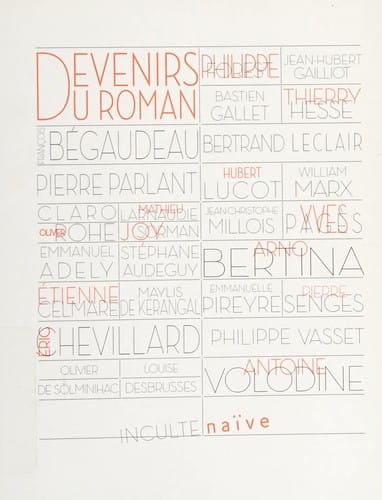 DEVENIRS
DU ROMAN
PHILIPPE
FOREST
JEAN-HUBERT
GAILLIOT
BASTIEN
GALLET
THIERRY
HESSE
FRANÇOIS
BÉGAUDEAU
BERTRAND LECLAIR
PIERRE PARLANT
HUBERT
LUCOT
WILLIAM
MARX
CLARO
OLIVER
ROHE
MATHIEU
LARNAUDIE
JOY
SORMAN
JEAN-CHRISTOPHE
MILLOIS
YVES
PAGÈS
EMMANUEL
ADELY
STÉPHANE
AUDEGUY
ARNO
BERTINA
ÉTIENNE
CELMARE
MAYLIS
DE KERANGAL
EMMANUELLE
PIREYRE
PIERRE
SENGES
ÉRIC
CHEVILLARD
PHILIPPE VASSET
OLIVIER
DE SOLMINIHAC
LOUISE
DESBRUSSES
ANTOINE
VOLODINE
INCULTE naïve